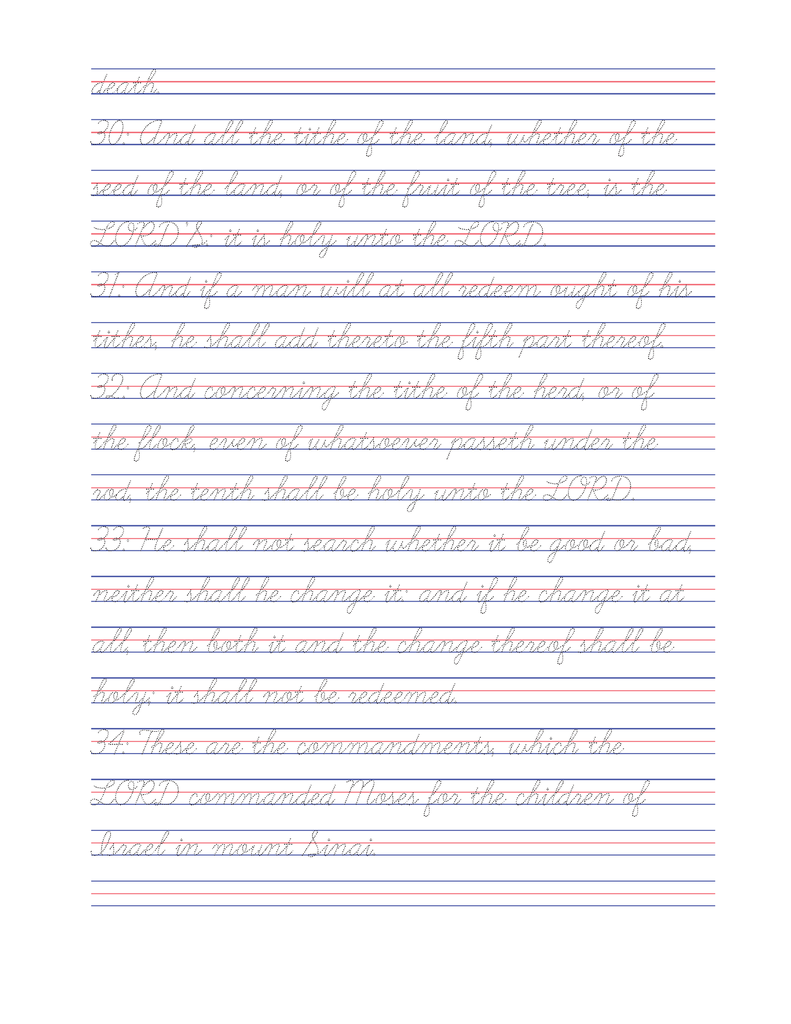 death.
30: And all the tithe of the land, whether of the
seed of the land, or of the fruit of the tree, is the
LORD'S: it is holy unto the LORD.
31: And if a man will at all redeem ought of his
tithes, he shall add thereto the fifth part thereof.
32: And concerning the tithe of the herd, or of
the flock, even of whatsoever passeth under the
rod, the tenth shall be holy unto the LORD.
33: He shall not search whether it be good or bad,
neither shall he change it: and if he change it at
all, then both it and the change thereof shall be
holy; it shall not be redeemed.
34: These are the commandments, which the
LORD commanded Moses for the children of
Israel in mount Sinai.